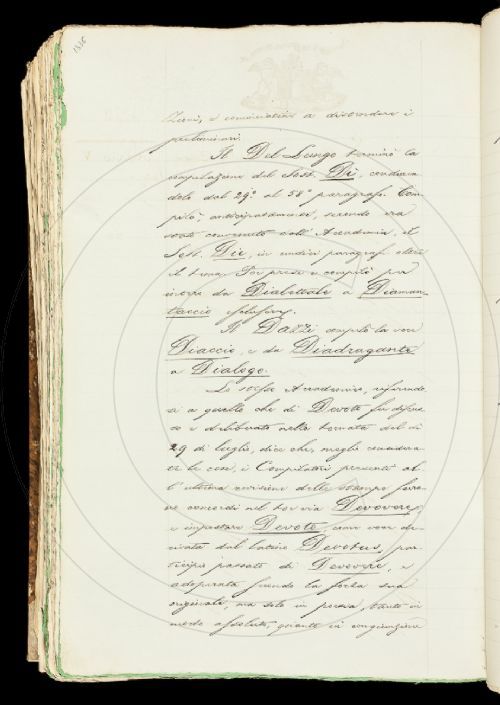 1336
zioni, e cominciatisi a distendere i
preliminari.
Il Del Lungo terminò la
compilazione del Sost. Di, conducen
dola dal 29.° al 58.° paragrafo. Com
pilò, anticipatamente, secondo era
stato convenuto coll'Accademia, il
Sost. Die, in undici paragrafi oltre
il tema. Poi prese a compilò per
intero da Diabettale a Diaman-
taccio
Il Dazzi compilò la voce
Diaccio, e da Diadragante
a Dialogo.
Lo stesso Accademico, riferendo
si a quello che di Devoto fu discus
so e deliberato nella tornata del dì
29 di luglio, dice che, meglio considera-
te le cose, i Compilatori presenti al
l'ultima revisione delle stampe furo-
no concordi nel tor via Devovere,
e impostare Devoto, come voce de-
rivata dal latino Devotus, par
ticipio passato di Devovere, e
adoperata secondo la forza sua
originale, ma solo in poesia, tanto in
modo assoluto, quanto in congiunzione